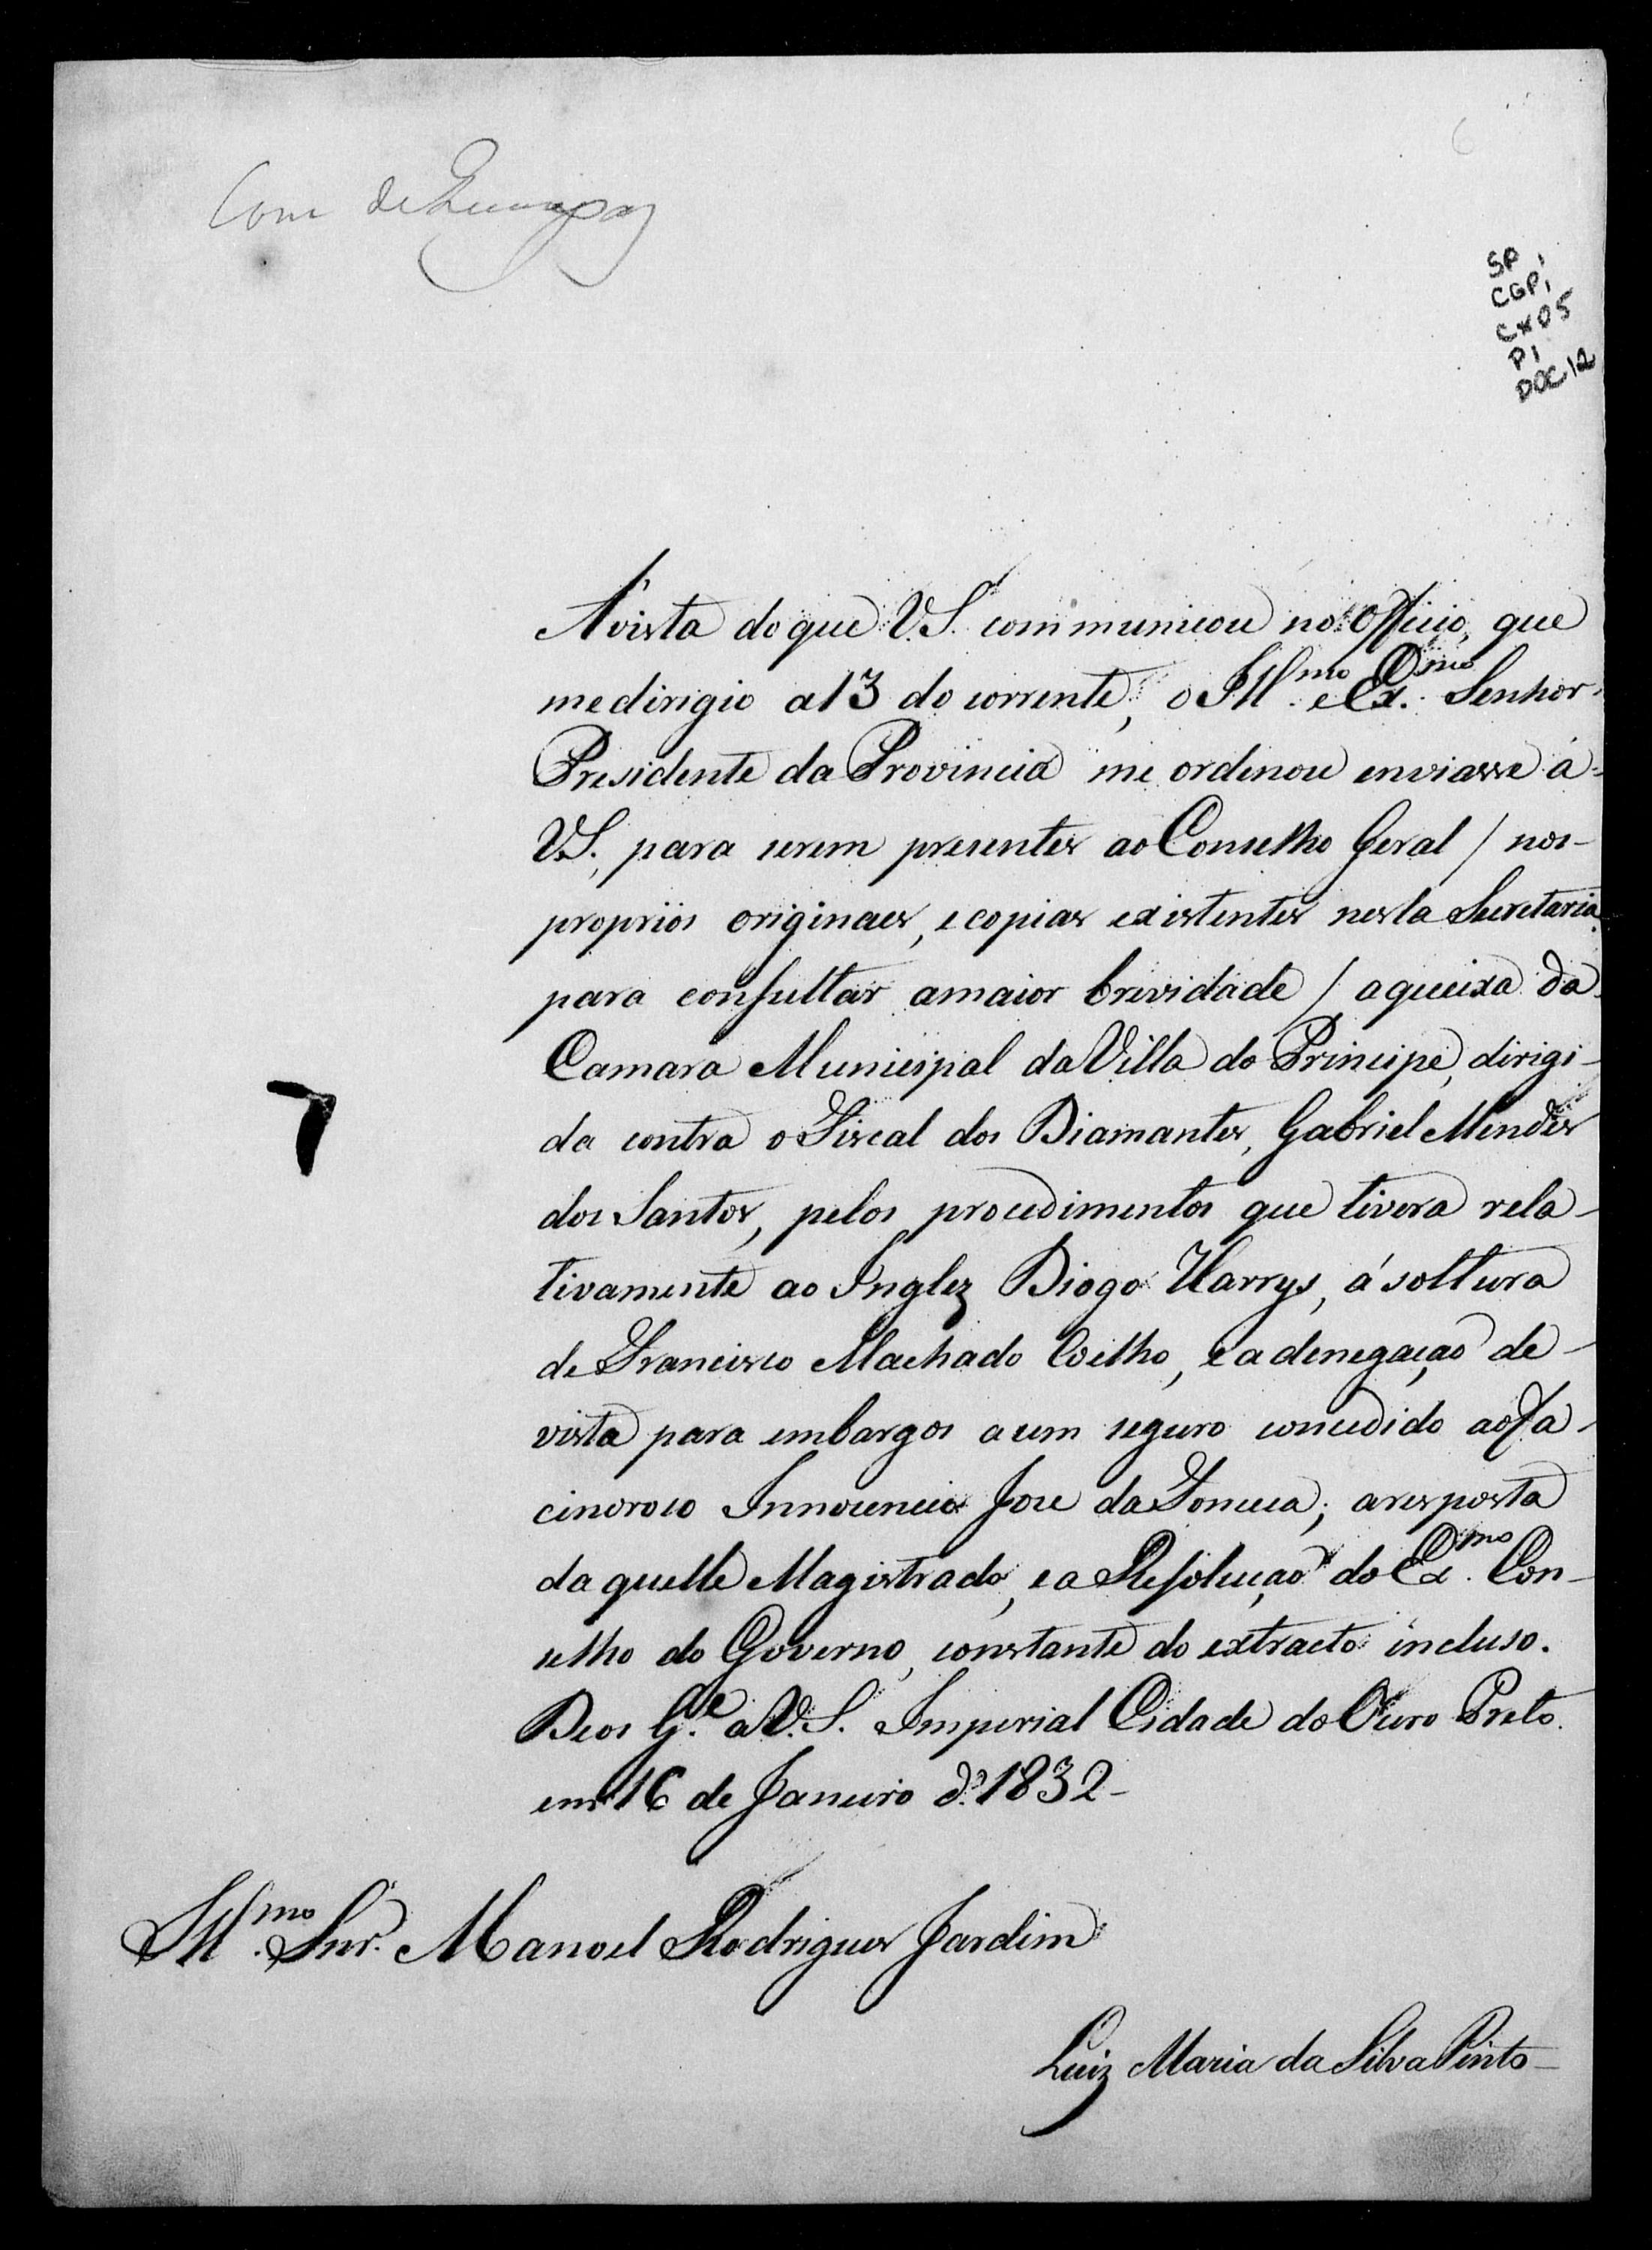 Com de
SP,
CGP1
CX05
P1
DOC12
Á vista do que V.S. communicou no Officio, que
me dirigio a 13 do corrente, o Ill.mo e Ex.mo Senhor
Presidente da Provincia me ordenou enviasse á
V.S., para serem presentes ao Conselho Geral / nos
proprios originaes, e copias existentes nesta Secretaria
para consultar a maior brividade / a queixa da
Camara Municipal da Villa do Principe, dirigi-
da contra o Fiscal dos Diamantes, Gabriel Mendes
dos Santos, pelos procedimentos que tivera rela-
tivamente ao Inglez Diogo Harrys, á soltura
de Francisco Machado Coelho, e a denegação de
vista para embargos a um seguro concedido ao fa-
cinoroso Innocencio Jose da Fonseca; a resposta
daquelle Magistrado, e a Resolução do Ex.mo Con-
selho do Governo, constante do extracto incluso.
Deos G.de a V.S. Imperial Cidade do Ouro Preto
em 16 de Janeiro d.e 1832-
Ill.mo Snr. Manoel Rodrigues Jardim
Luiz Maria da Silva Pinto-